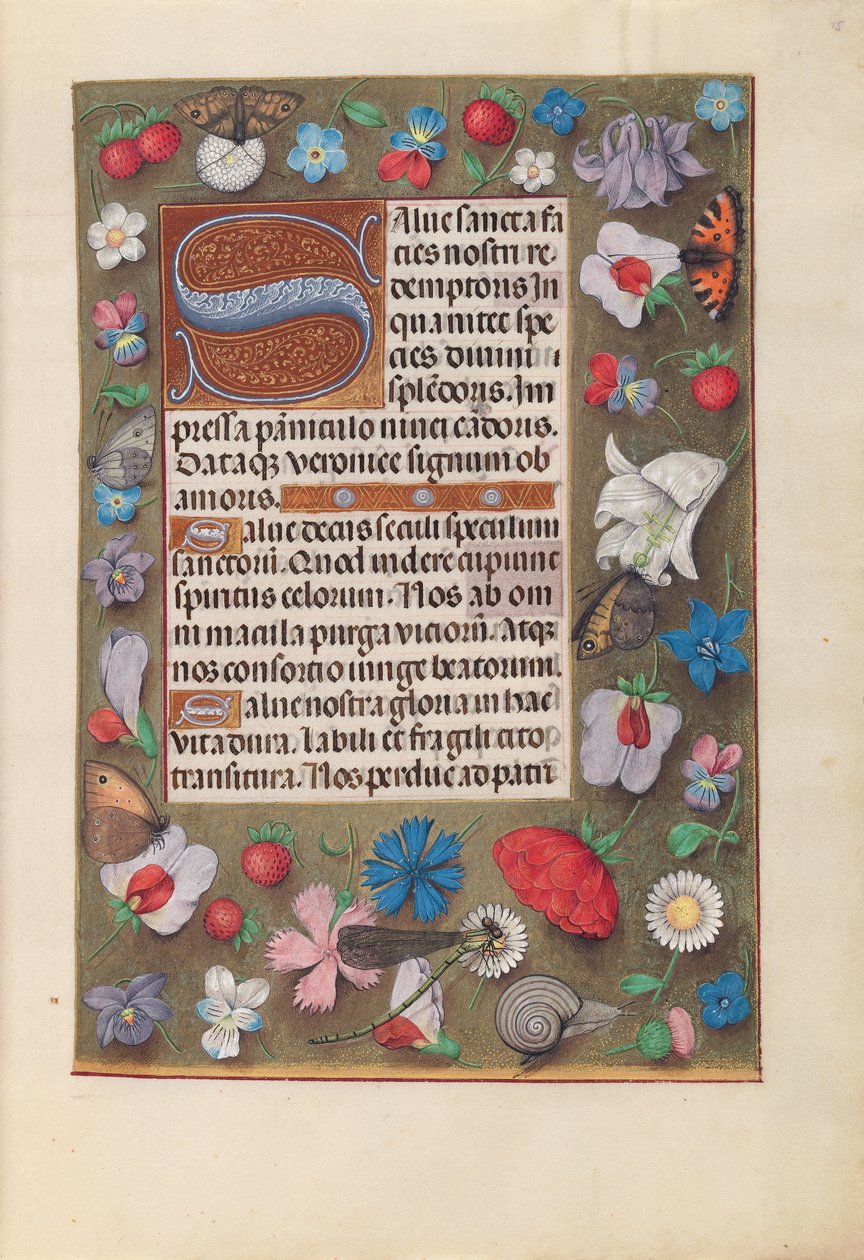 Salue sancta fa
cies nostri re-
demptoris In
qua nitet spe
cies diuini
splẽdoris. Im
pressa pãniculo niuei cãdoris.
Dataqʒ veronice signum ob
amoris.
Salue decus seculi speculum
sanctorũ. Quod uidere cupiunt
spiritus celorum. Nos ab om
ni macula purga viciorũ. Atqʒ
nos consortio iunge beatorum.
Salue nostra gloria in hac
vita dura. Labili et fragili cito
transitura. Nos perduc ad patri